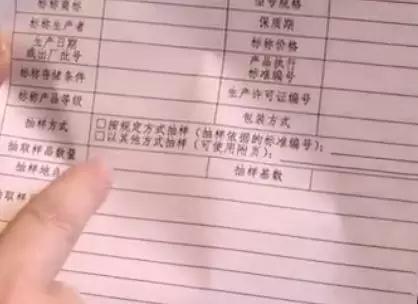 标称商标 型号规格
标称生产者 保质期
生产日期 标称价格
或出厂批号
标称存储条件 产品执行
标准编号
标称产品等级 生产许可证编号
抽样方式 包装方式
□按规定方式抽样（抽样依据的标准编号）：
□以其他方式抽样（可使用附页）：
抽取样品数量 抽样基数
抽样地点